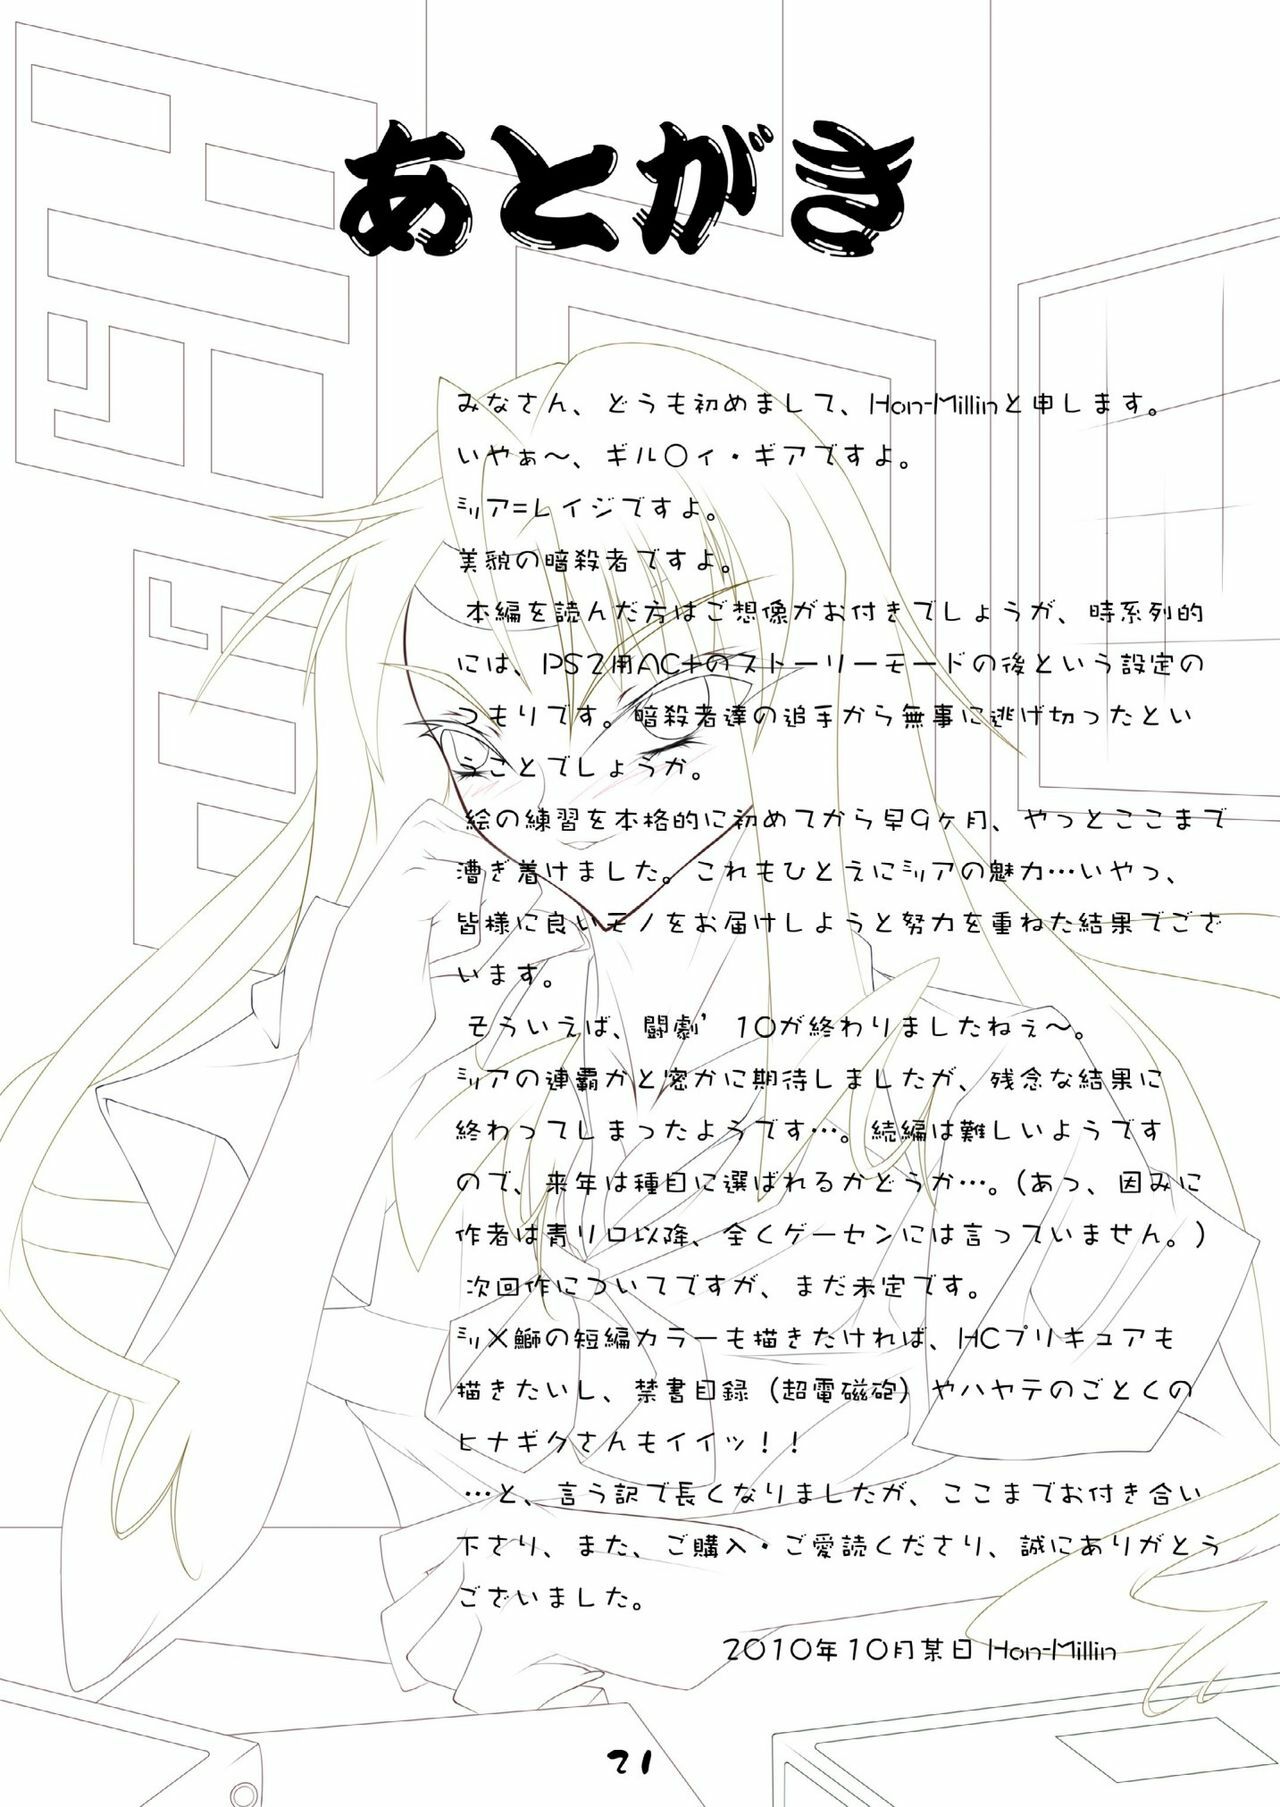 あとがき
みなさん、どうも初めまして、Hon-Millinと申します。
いやぁ～、ギル〇ィ・ギアですよ。
ミリア=レイジですよ。
美貌の暗殺者ですよ。
本編を読んだ方はご想像がお付きでしょうが、時系列的
には、PS2用AC+のストーリーモードの後という設定の
つもりです。暗殺者達の追手から無事に逃げ切ったとい
うことでしょうか。
絵の練習を本格的に初めてから早9ヶ月、やっとここまで
漕ぎ着けました。これもひとえにミリアの魅力…いやっ、
皆様に良いモノをお届けしようと努力を重ねた結果でござ
います。
そういえば、闘劇’10が終わりましたねぇ～。
ミリアの連覇かと密かに期待しましたが、残念な結果に
終わってしまったようです…。続編は難しいようです
ので、来年は種目に選ばれるかどうか…。(あっ、因みに
作者は青リロ以降、全くゲーセンには言っていません。)
次回作についてですが、まだ未定です。
ミリ×鰤の短編カラーも描きたければ、HCプリキュアも
描きたいし、禁書目録（超電磁砲）やハヤテのごとくの
ヒナギクさんもイイッ！！
…と、言う訳で長くなりましたが、ここまでお付き合い
下さり、また、ご購入・ご愛読くださり、誠にありがとう
ございました。
2010年10月某日 Hon-Millin
21